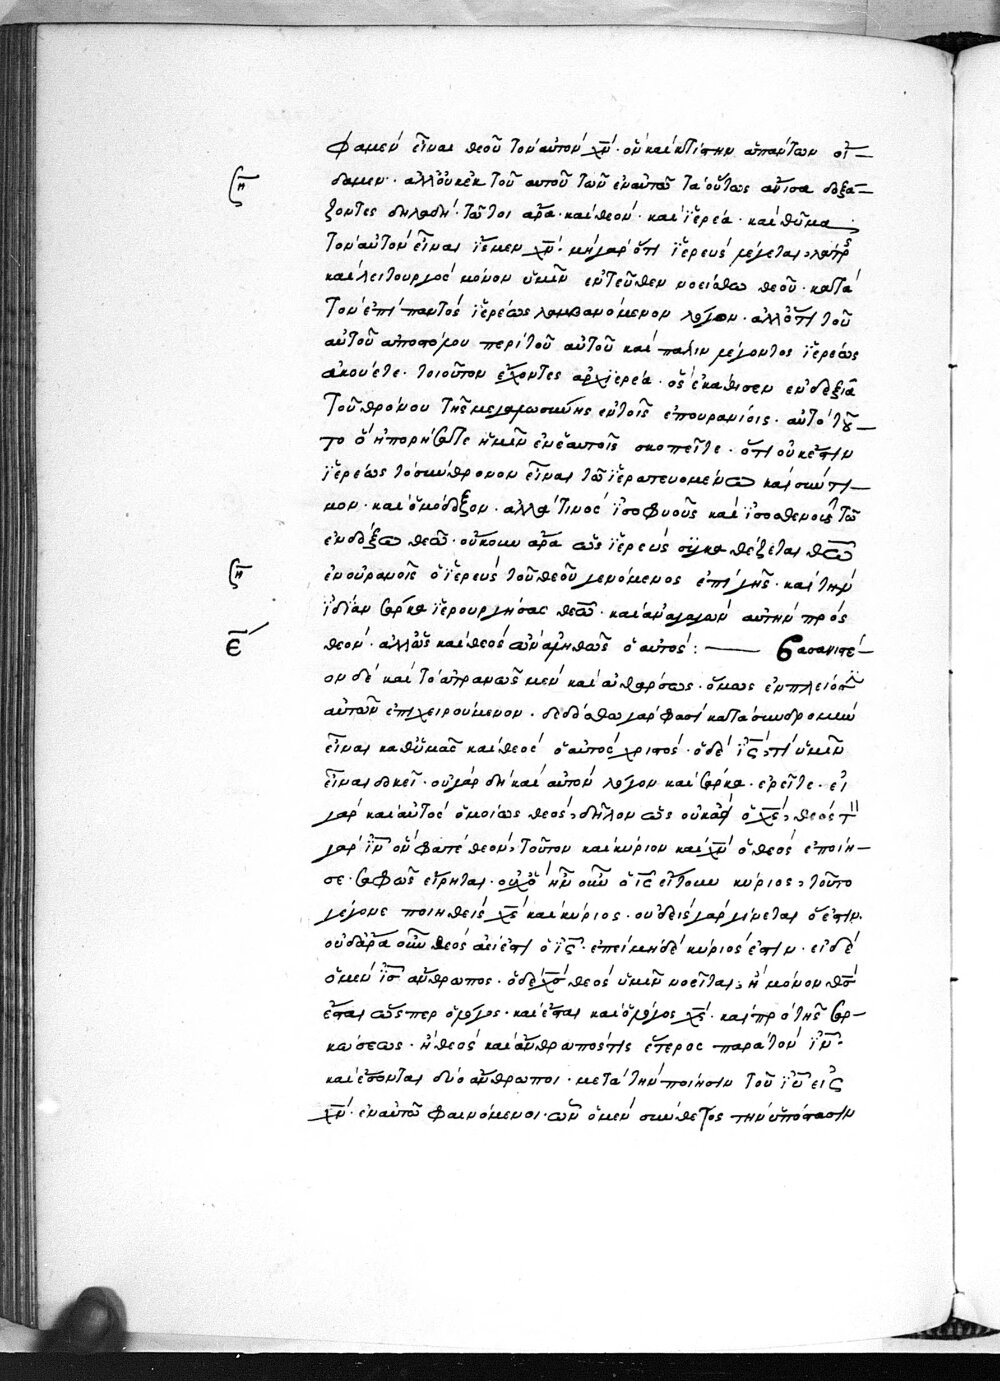 φαμὲν εἶναι θεοῦ τὸν αὐτὸν χν· ὃν καὶ κτίστην ἁπάντων οἴ-
ζη
δαμεν· ἀλλ' οὐκ ἐκ τοῦ αὐτοῦ τῶν ἐν αὐτῶ τὰ οὕτως ἄνισα δοξά-
ζοντες δηλαδή· τῶ τοι ἄρα καὶ θεὸν· καὶ ἱερέα· καὶ θῦμα
τὸν αὐτὸν εἶναι ἴσμεν χν· μὴ γὰρ ὅτι ἱερεὺς λέγεται,
καὶ λειτουργὸς μόνον ὑμῖν ἐντεῦθεν νοείσθω θεοῦ· κατὰ
τὸν ἐπὶ παντὸς ἱερέως λαμβανόμενον λόγον· ἀλλ' ὅτι τοῦ
αὐτοῦ ἀποστόλου περὶ τοῦ αὐτοῦ καὶ πάλιν λέγοντος ἱερέως
ἀκούετε· τοιοῦτον ἔχοντες ἀρχιερέα· ὃς ἐκάθισεν ἐν δεξιᾶ
τοῦ θρόνου τῆς μεγαλωσύνης ἐν τοῖς ἐπουρανίοις· αὐτὸ τοῦ-
το ὃ ἠπορήσατε ἡμῖν ἐν ἑαυτοῖς σκοπεῖτε· ὅτι οὐκ ἔστιν
ἱερέως τὸ σύνθρονον εἶναι τῶ ἱερατευομένω καὶ σύντι-
μον· καὶ ὁμόδοξον· ἀλλά τινος ἰσοφυοῦς καὶ ἰσοσθενοῦς τῶ
ἐνδόξω θεῶ· οὔκουν ἄρα ὡς ἱερεὺς συγκαθέζεται θεῶ
ζη
ἐν οὐρανοῖς ὁ ἱερεὺς τοῦ θεοῦ γενόμενος ἐπὶ γῆς· καὶ τὴν
ἰδίαν σάρκα ἱερουργήσας θεῶ· καὶ ἀναγαγὼν αὐτὴν πρὸς
ε
θεὸν· ἀλλ' ὡς καὶ θεὸς ὢν ἀληθῶς ὁ αὐτός: — βασανιστέ-
ον δὲ καὶ τὸ ἀτρανῶς μὲν καὶ ἀνθαρσῶς· ὅμως ἐν πλείοσιν
αὐτῶν ἐπιχειρούμενον· δεδόσθω γὰρ φασὶ κατὰ συνδρομὴν
εἶναι καθ' ὑμᾶς καὶ θεὸς ὁ αὐτὸς χριστός· ὁ δὲ ις, τί ὑμῖν
εἶναι δοκεῖ· οὐ γὰρ δὴ καὶ αὐτὸν λόγον καὶ σάρκα ἐρεῖτε· εἰ
γὰρ καὶ αὐτὸς ὁμοίως θεός, δῆλον ὡς οὐκ ὁ χς, θεὸς
γὰρ ιν ὃν φατὲ θεὸν, τοῦτον καὶ κύριον καὶ χν ὁ θεὸς ἐποίη-
σε· σαφῶς εἴρηται· οὐχ ὃ ἦν οὖν ὁ ις εἴτουν κύριος, τοῦτο
γέγονε ποιηθεὶς χς καὶ κύριος· οὐδεὶς γὰρ γίνεται ὅ ἐστιν·
οὐδ' ἄρα οὖν θεὸς ἀεί ἐστι ὁ ις· ἐπεὶ μηδὲ κύριος ἐστιν· εἰ δὲ
ὁ μὲν ις ἄνθρωπος· ὁ δὲ χς θεὸς ὑμῖν νοεῖται, ἢ μόνον θς
ἔσται ὥσπερ ὁ λόγος· καὶ ἔσται καὶ ὁ λόγος χς· καὶ πρὸ τῆς σαρ-
κώσεως· ἢ θεὸς καὶ ἄνθρωπός τις ἕτερος παρὰ τὸν ιν·
καὶ ἔσονται δύο ἄνθρωποι· μετὰ τὴν ποίησιν τοῦ ιυ εἰς
χν· ἐν αὐτῶ φαινόμενοι· ὧν ὁ μὲν σύνθετος τὴν ὑπόστασιν